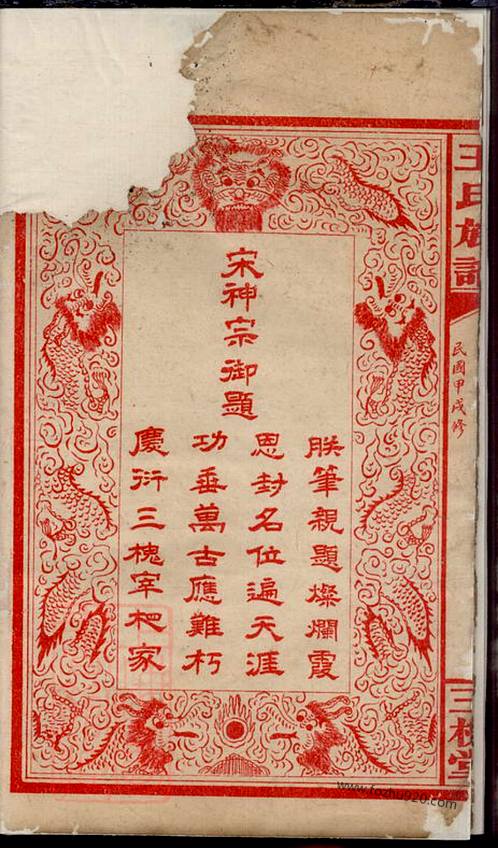 王氏族譜
民國甲戌修
三槐堂
宋神宗御題
朕筆親題燦爛霞
恩封名位遍天涯
功垂萬古應難朽
慶衍三槐宰相家
www.fozhu920.com